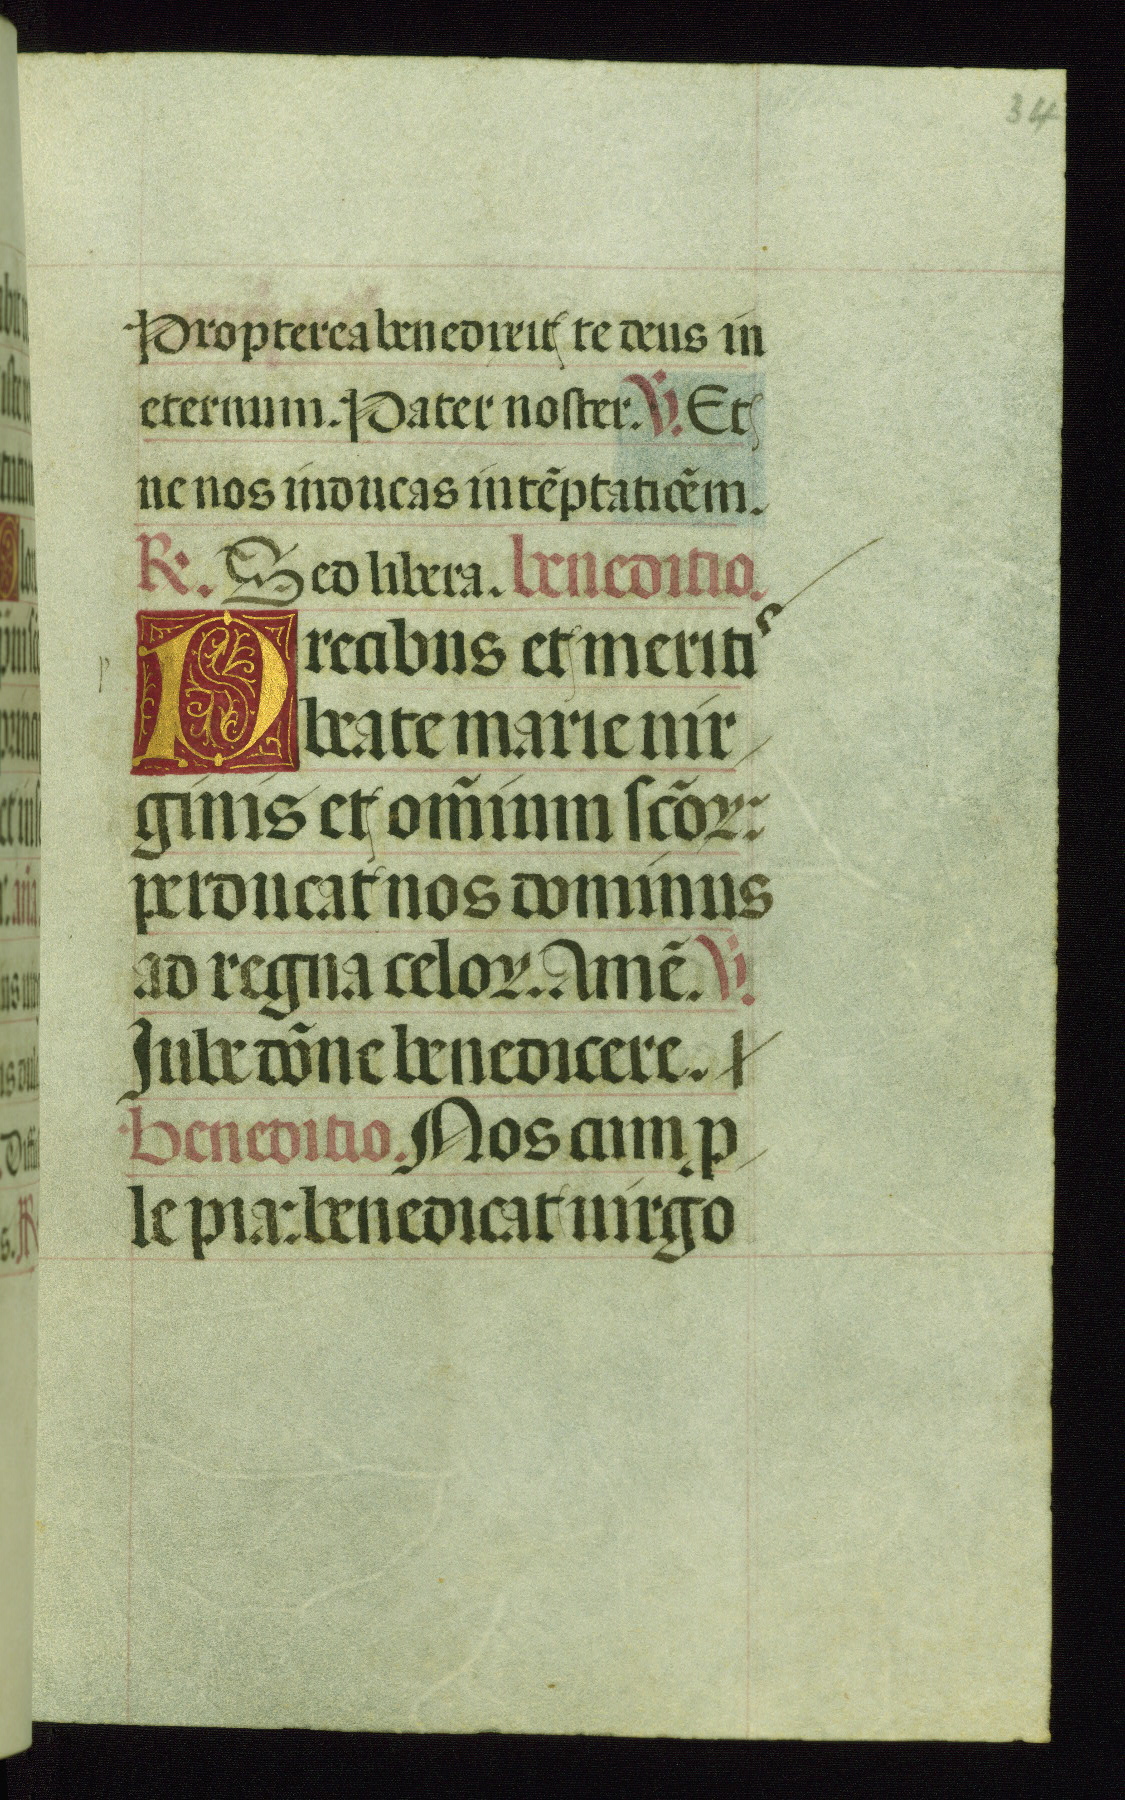 34
Propterea benedixit te deus in
eternum. Pater noster. V. Et
ne nos inducas in tẽptatiõem.
R. Sed libera. beneditio.
p
Precibus et meritis
beate marie uir
ginis et om̃ium sc̃oꝝ:
perducat nos dominus
ad regna celoꝝ. Amẽ. V.
Iube dõne benedicere.
Beneditio. Nos cum ꝓ
le pia: benedicat uirgo